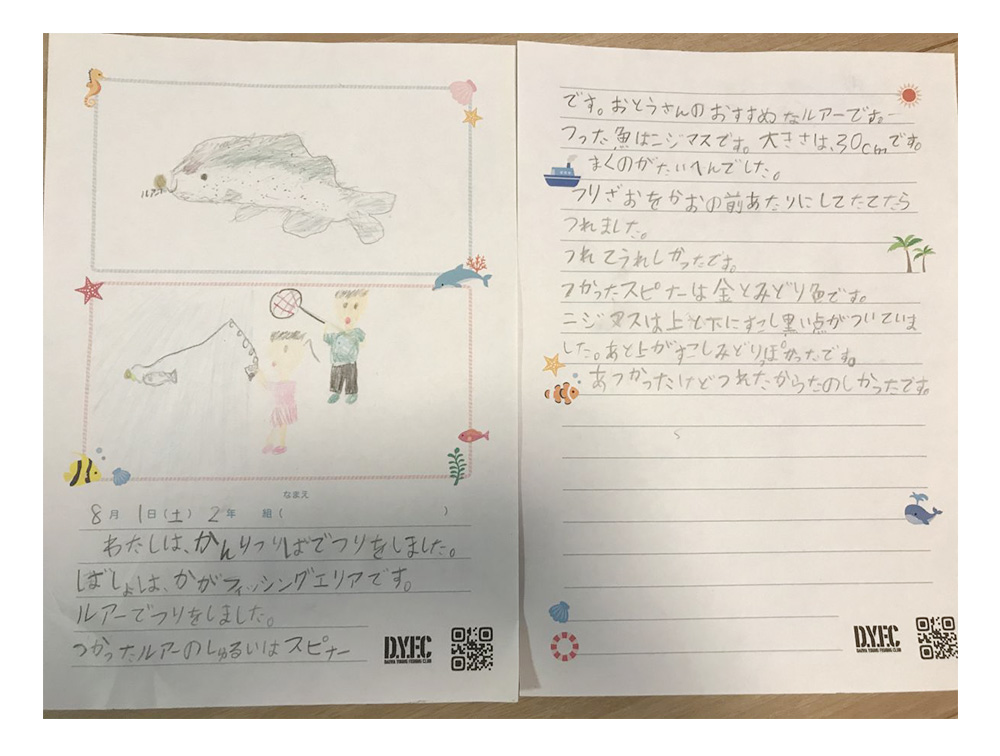 ルアー
なまえ
8月 1日(土) 2年 組( )
わたしは、かんりつりばでつりをしました。
ばしょは、かがフィッシングエリアです。
ルアーでつりをしました。
つかったルアーのしゅるいはスピナー
D.Y.F.C
DAIWA YOUNG FISHING CLUB
です。おとうさんのおすすめなルアーです。
つった魚はニジマスです。大きさは、30cmです。
まくのがたいへんでした。
つりざおをかおの前あたりにしてたてたら
つれました。
つれてうれしかったです。
つかったスピナーは金とみどり色です。
ニジマスは上と下にすこし黒い点がついていま
した。あと上がすこしみどりっぽかったです。
あつかったけどつれたからたのしかったです。
D.Y.F.C
DAIWA YOUNG FISHING CLUB